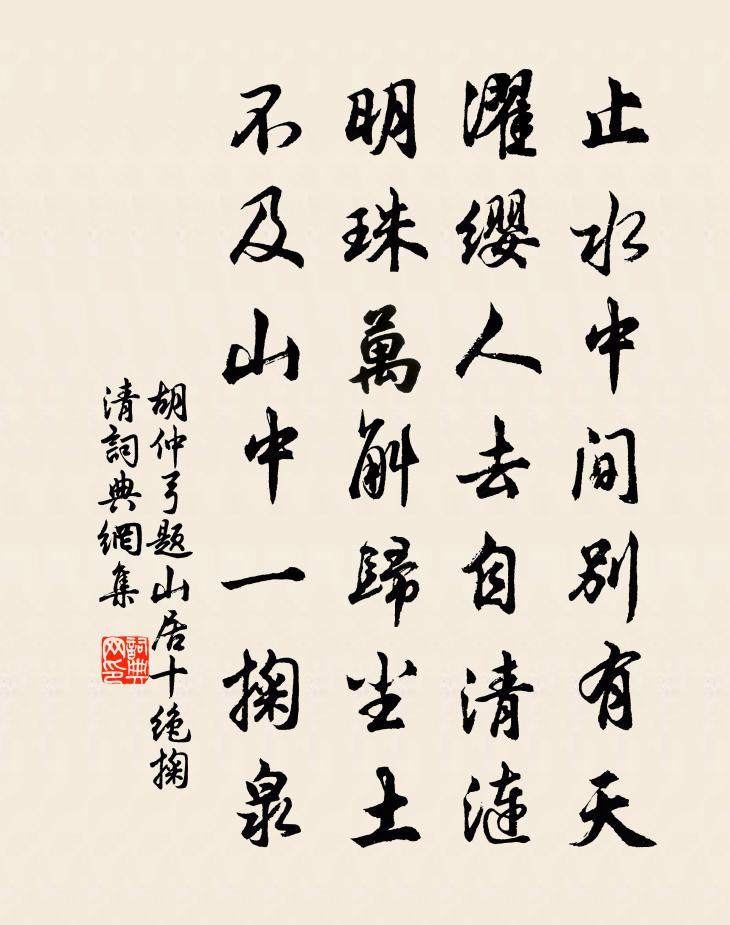 止水中间别有天
濯缨人去自清涟
明珠萬斛歸尘土
不及山中一掬泉
胡仲弓题山居十绝掬
清詞典網集
詞典网印